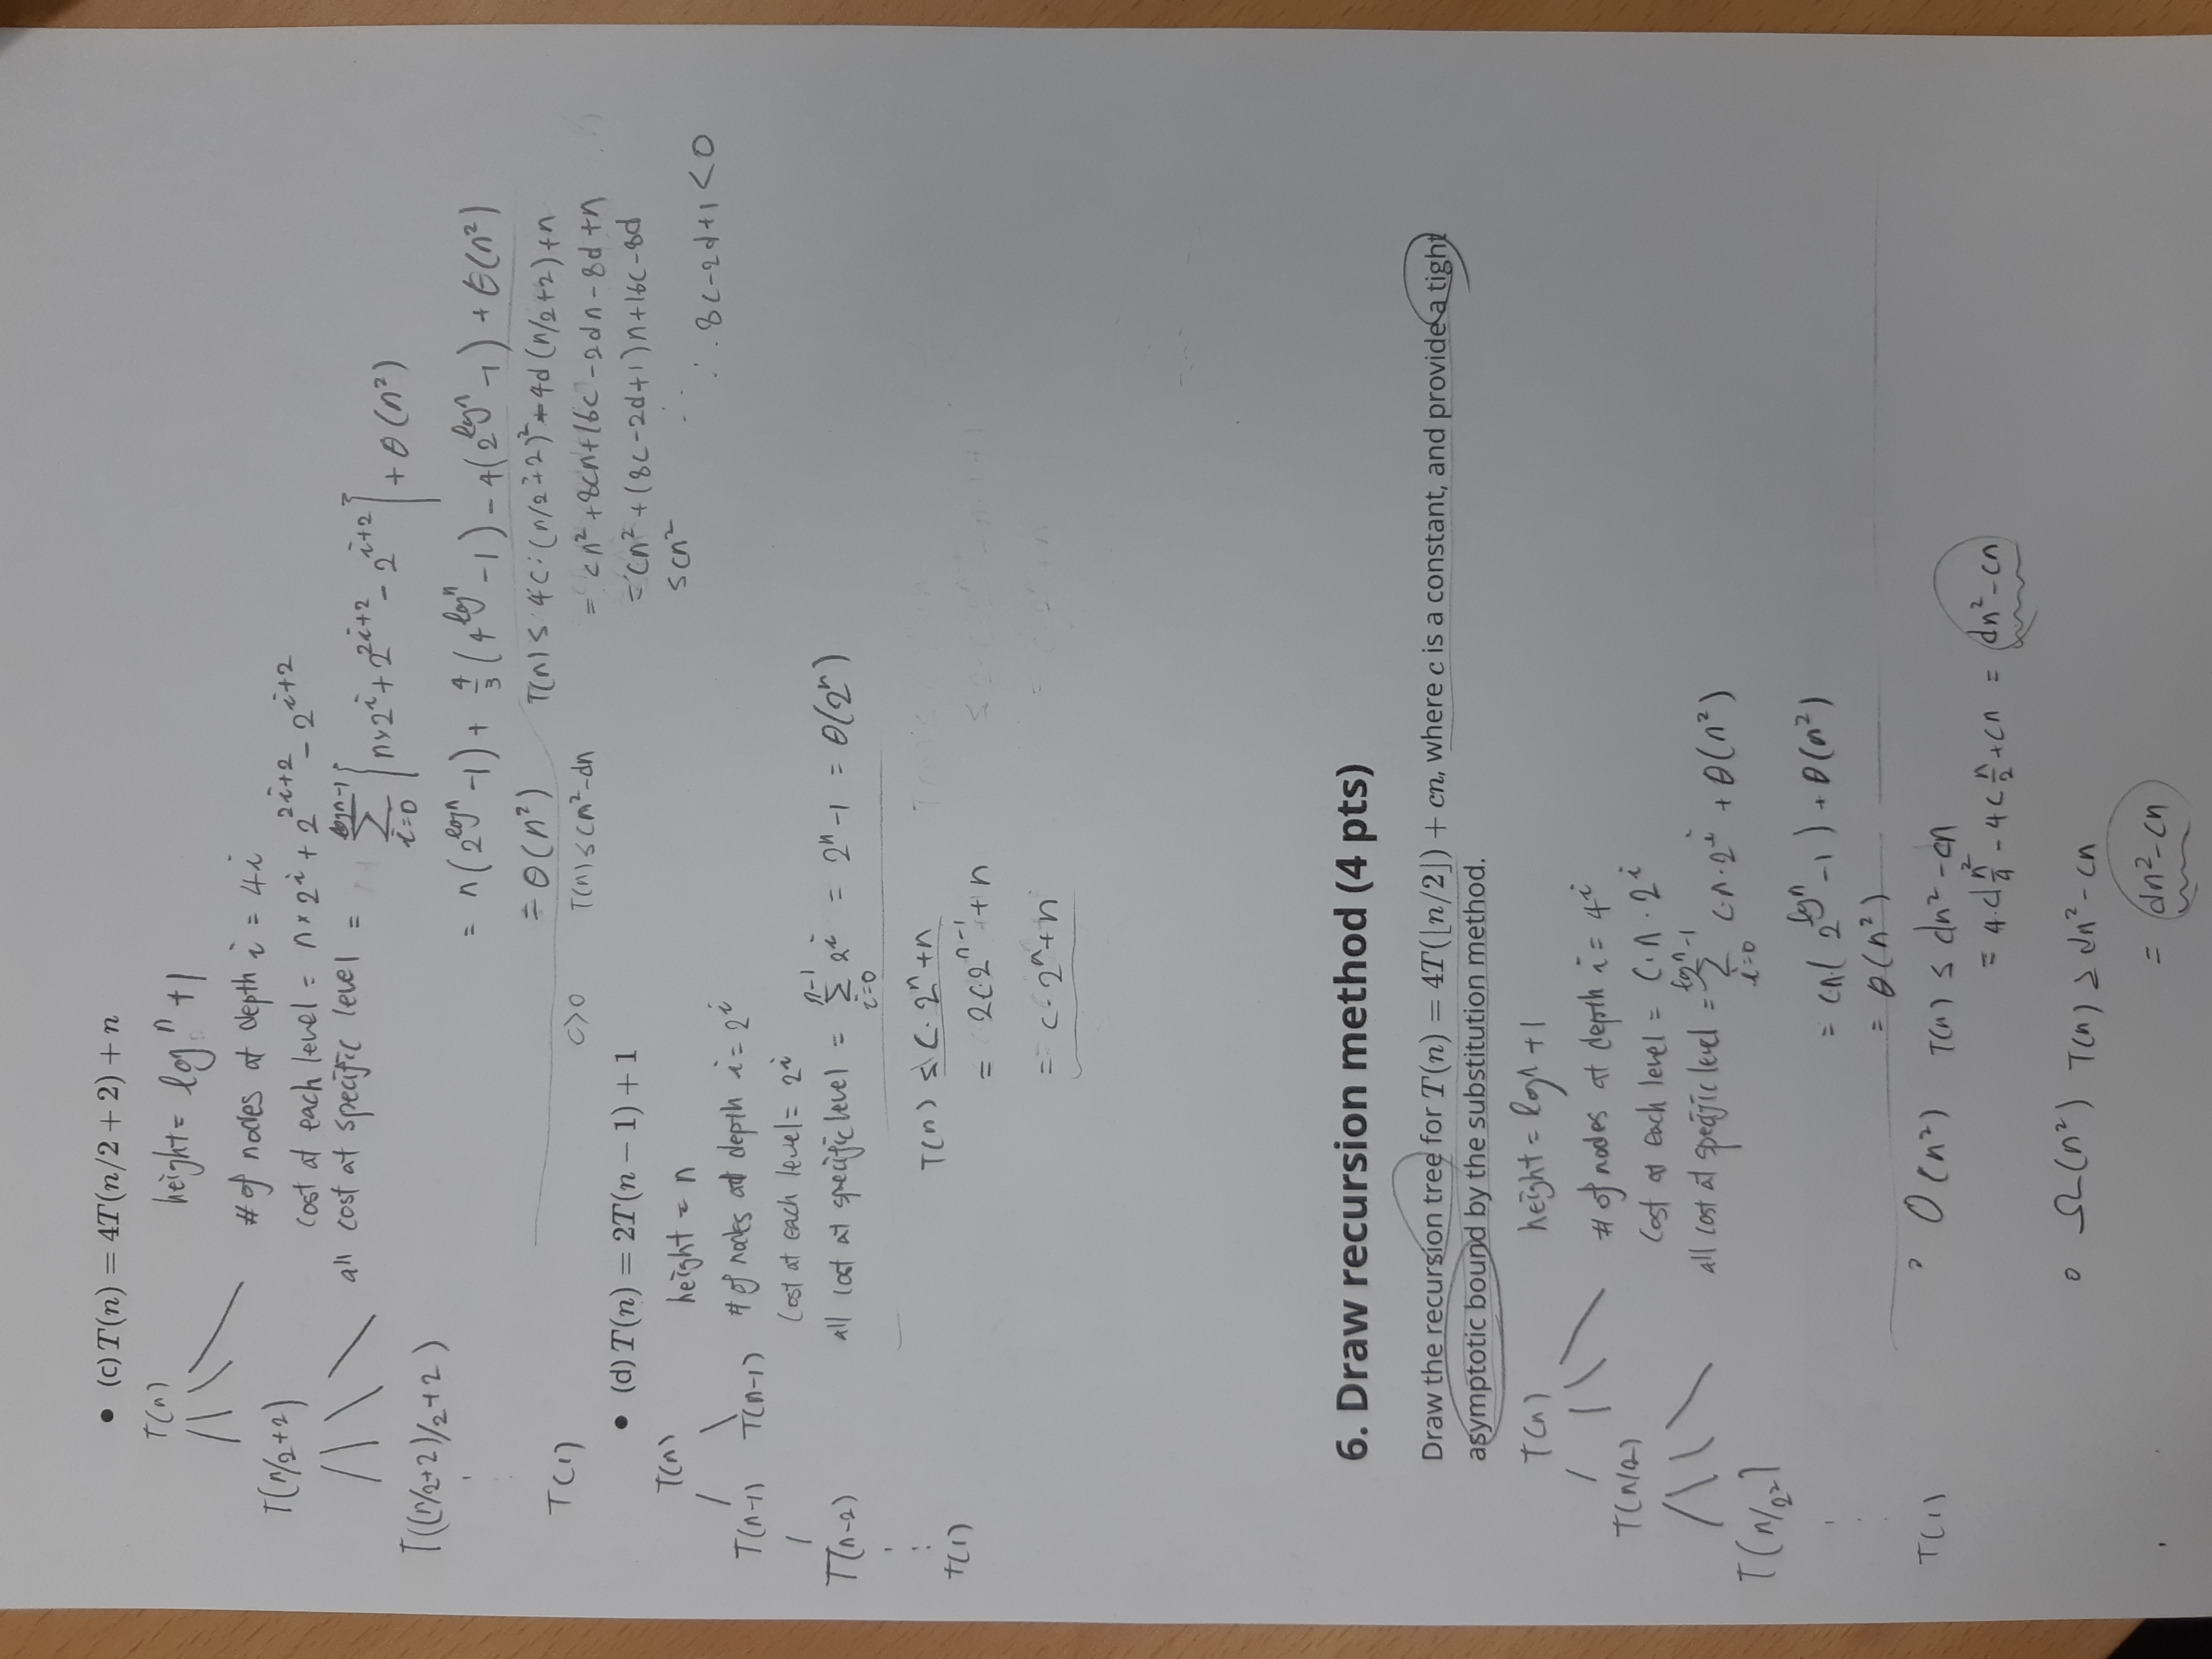 • (c) T(n) = 4T(n/2 + 2) + n
T(n)
height = log n + 1
# of nodes at depth i = 4i
T(n/2+2)
cost at each level = n × 2^i + 2^{2i+2} - 2^{i+2}
all cost at specific level = Σ_{i=0}^{log n-1} [n×2^i + 2^{2i+2} - 2^{i+2}] + θ(n²)
T((n/2+2)/2+2)
= n(2^{log n} - 1) + 4/3 (4^{log n} - 1) - 4(2^{log n} - 1) + θ(n²)
= θ(n²)
T(1)
c>0 T(n) ≤ cn²-dn
T(n) ≤ 4c·(n/2+2)² - 4d(n/2+2)+n
= cn²+8cn+16c-2dn-8d+n
= cn²+(8c-2d+1)n+16c-8d
≤ cn²
∴ 8c-2d+1<0
• (d) T(n) = 2T(n − 1) + 1
T(n)
height = n
T(n-1) T(n-1)
# of nodes at depth i = 2^i
cost at each level = 2^i
T(n-2)
all cost at specific level = Σ_{i=0}^{n-1} 2^i = 2^n - 1 = θ(2^n)
T(1)
T(n) ≤ c·2^n+n
= 2c2^{n-1}+n
= c·2^n+n
6. Draw recursion method (4 pts)
Draw the recursion tree for T(n) = 4T(⌊n/2⌋) + cn, where c is a constant, and provide a tight
asymptotic bound by the substitution method.
T(n)
height = log n + 1
# of nodes at depth i = 4^i
T(n/2)
cost at each level = c·n·2^i
all cost at specific level = Σ_{i=0}^{log n-1} c·n·2^i + θ(n²)
T(n/2²)
= cn·(2^{log n} - 1) + θ(n²)
= θ(n²)
T(1)
O(n²) T(n) ≤ dn²-cn
= 4·d n²/4 - 4c n/2 + cn = dn²-cn
Ω(n²) T(n) ≥ dn²-cn
= dn²-cn